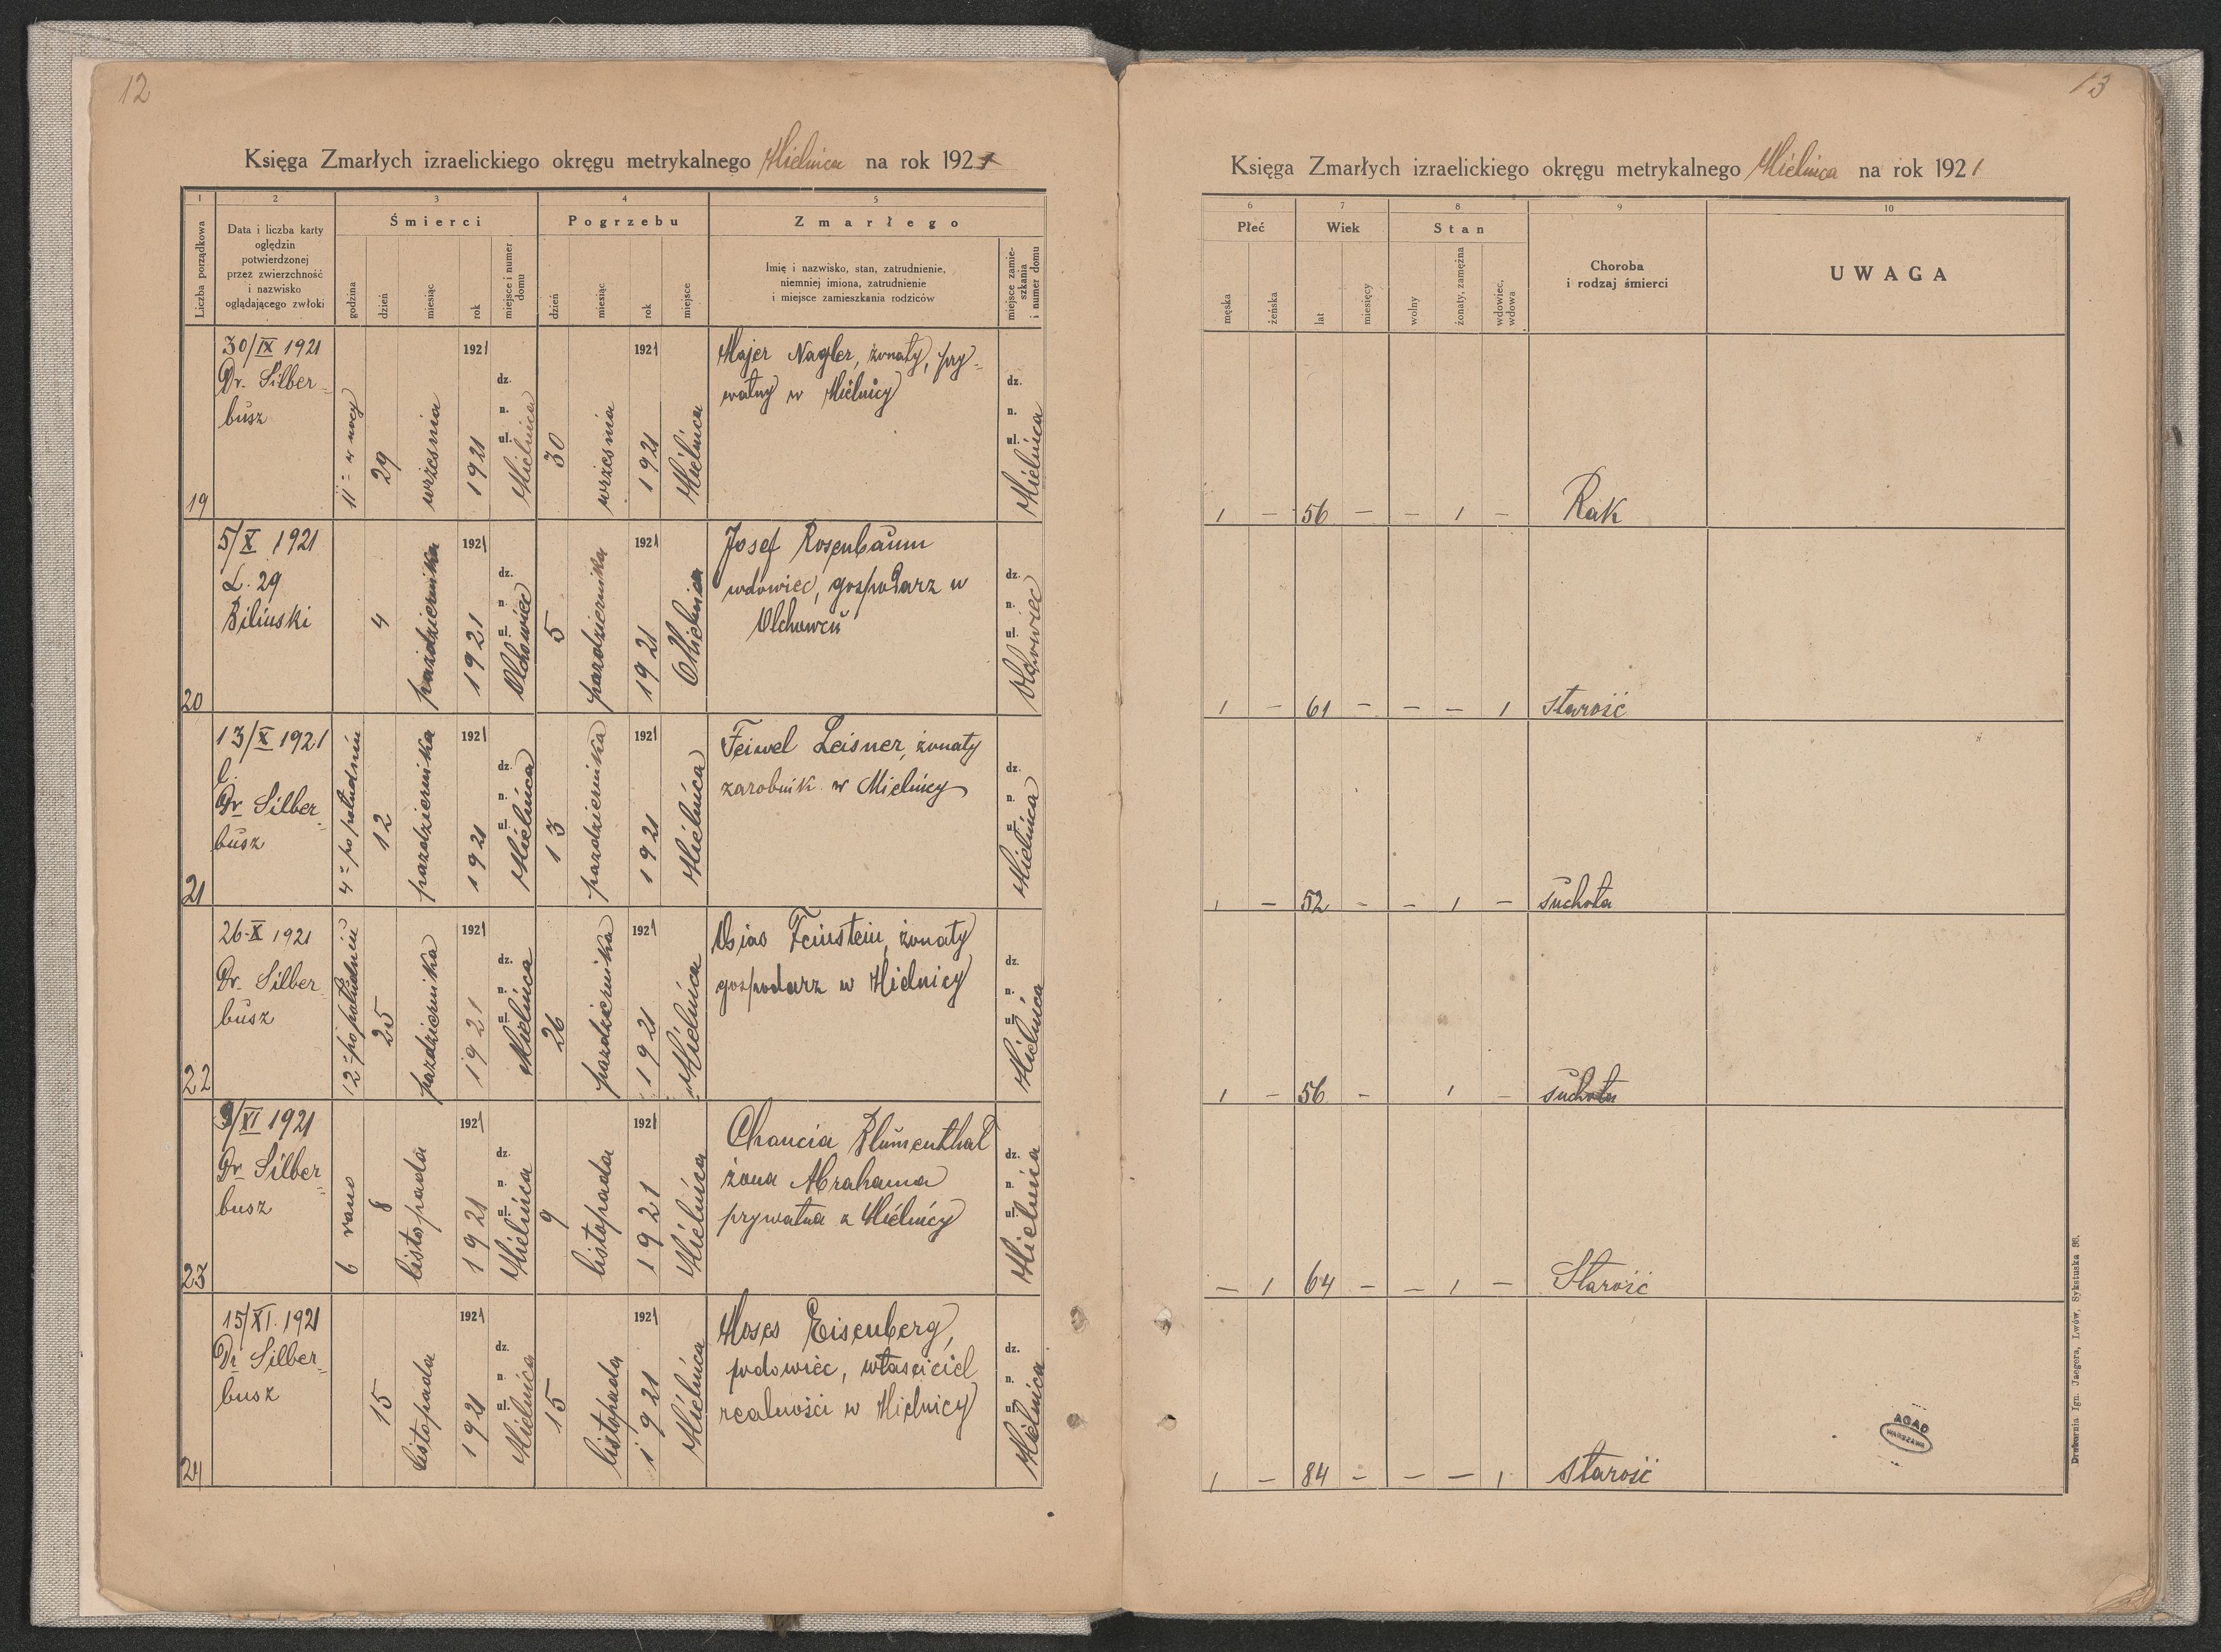 12
Księga Zmarłych izraelickiego okręgu metrykalnego Mielnica na rok 1921
1
2
3
4
5
Liczba porządkowa
Data i liczba karty
oględzin
potwierdzonej
przez zwierzchność
i nazwisko
oglądającego zwłoki
Śmierci
godzina
dzień
miesiąc
rok
miejsce i numer
domu
Pogrzebu
dzień
miesiąc
rok
miejsce
Zmarłego
Imię i nazwisko, stan, zatrudnienie,
niemniej imiona, zatrudnienie
i miejsce zamieszkania rodziców
miejsce zamie-
szkania
i numer domu
19
30/IX 1921
Dr. Silber-
busz
11 - w nocy
29
września
1921
1921
dz.
n.
ul.
Mielnica
30
września
1921
1921
Mielnica
Majer Nagler, żonaty, pry-
watny w Mielnicy
dz.
n.
ul.
Mielnica
20
5/X 1921
L. 29
Biliński
4
października
1921
1921
dz.
n.
ul.
Olchowiec
5
pazdziernika
1921
1921
Mielnica
Josef Rosenbaum
wdowiec, gospodarz w
Olchowcu
dz.
n.
ul.
Olchowiec
21
13/X 1921
l.
Dr Silber-
busz
4 - po południu
12
pazdziernika
1921
1921
dz.
n.
ul.
Mielnica
13
pazdziernika
1921
1921
Mielnica
Feiwel Leisner, żonaty
zarobnik w Mielnicy
dz.
n.
ul.
Mielnica
22
26-X 1921
Dr. Silber
busz
12 - po południu
25
pazdziernika
1921
1921
dz.
n.
ul.
Mielnica
26
pazdziernika
1921
1921
Mielnica
Osias Feinstein, żonaty
gospodarz w Mielnicy
dz.
n.
ul.
Mielnica
23
9/XI 1921
Dr Silber-
busz
6 rano
8
listopada
1921
1921
dz.
n.
ul.
Mielnica
9
listopada
1921
1921
Mielnica
Chancia Blumenthal
żona Abrahama
prywatna z Mielnicy
dz.
n.
ul.
Mielnica
24
15/XI. 1921
Dr Silber-
busz
15
listopada
1921
1921
dz.
n.
ul.
Mielnica
15
listopada
1921
1921
Mielnica
Moses Eisenberg,
wdowiec, właściciel
realności w Mielnicy
dz.
n.
ul.
Mielnica
13
Księga Zmarłych izraelickiego okręgu metrykalnego Mielnica na rok 1921
6
7
8
9
10
Płeć
męska
żeńska
Wiek
lat
miesięcy
Stan
wolny
żonaty, zamężna
wdowiec,
wdowa
Choroba
i rodzaj śmierci
UWAGA
1 — 56 — — 1 — Rak
1 — 61 — — — 1 starość
1 — 52 — — 1 — suchota
1 — 56 — 1 — suchota
— 1 64 — — 1 — Starość
1 — 84 — — — 1 starość
AGAD
WARSZAWA
Drukarnia Ign. Jaegera, Lwów, Sykstuska 36.